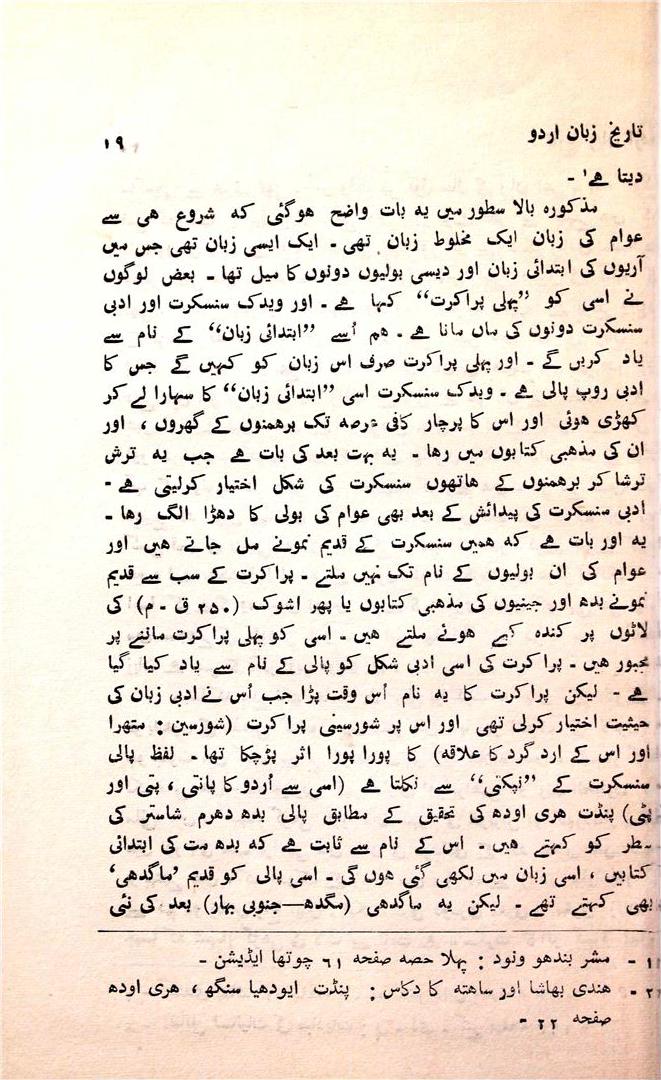 تاریخ زبان اردو ۱۹
دیتا ھے' -
مذکورہ بالا سطور میں یہ بات واضح ھوگئی کہ شروع ھی سے
عوام کی زبان ایک مخلوط زبان تھی - ایک ایسی زبان تھی جس میں
آریوں کی ابتدائی زبان اور دیسی بولیوں دونوں کا میل تھا - بعض لوگوں
نے اسی کو ''پہلی پراکرت'' کہا ھے - اور ویدک سنسکرت اور ادبی
سنسکرت دونوں کی ماں مانا ھے - ھم اُسے ''ابتدائی زبان'' کے نام سے
یاد کریں گے - اور پہلی پراکرت صرف اس زبان کو کہیں گے جس کا
ادبی روپ پالی ھے - ویدک سنسکرت اسی ''ابتدائی زبان'' کا سہارا لے کر
کھڑی ھوئی اور اس کا پرچار کافی عرصہ تک برھمنوں کے گھروں ، اور
ان کی مذھبی کتابوں میں رھا - یہ بہت بعد کی بات ھے جب یہ ترش
ترشا کر برھمنوں کے ھاتھوں سنسکرت کی شکل اختیار کرلیتی ھے -
ادبی سنسکرت کی پیدائش کے بعد بھی عوام کی بولی کا دھڑا الگ رھا -
یہ اور بات ھے کہ ھمیں سنسکرت کے قدیم نمونے مل جاتے ھیں اور
عوام کی ان بولیوں کے نام تک نہیں ملتے - پراکرت کے سب سے قدیم
نمونے بدھ اور جینیوں کی مذھبی کتابوں یا پھر اشوک (۲۵۰ ق - م) کی
لاٹوں پر کندہ کیے ھوئے ملتے ھیں - اسی کو پہلی پراکرت ماننے پر
مجبور ھیں - پراکرت کی اسی ادبی شکل کو پالی کے نام سے یاد کیا گیا
ھے - لیکن پراکرت کا یہ نام اُس وقت پڑا جب اُس نے ادبی زبان کی
حیثیت اختیار کرلی تھی اور اس پر شورسینی پراکرت (شورسین : متھرا
اور اس کے ارد گرد کا علاقہ) کا پورا پورا اثر پڑچکا تھا - لفظ پالی
سنسکرت کے ''نپکتی'' سے نکلتا ھے (اسی سے اُردو کا پانتی ، پتی اور
پٹی) پنڈت ھری اودھ کی تحقیق کے مطابق پالی بدھ دھرم شاستر کی
سطر کو کہتے ھیں - اس کے نام سے ثابت ھے کہ بدھ مت کی ابتدائی
کتابیں ، اسی زبان میں لکھی گئی ھوں گی - اسی پالی کو قدیم 'ماگدھی'
بھی کہتے تھے - لیکن یہ ماگدھی (مگدھ—جنوبی بہار) بعد کی نئی
۱ - مشر بندھو ونود : پہلا حصہ صفحہ ۶۱ چوتھا ایڈیشن -
۲ - ھندی بھاشا اور ساھتہ کا دکاس : پنڈت ایودھیا سنگھ ، ھری اودھ
صفحہ ۲۲ -